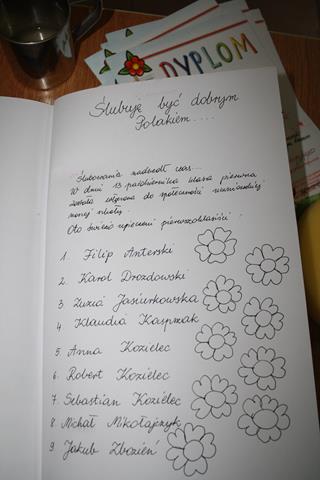 DYPLOM
Ślubuję być dobrym
Polakiem....
Ślubowania nadszedł czas...
W dniu 13 października klasa pierwsza
została włączona do społeczności uczniowskiej
naszej szkoły.
Oto świeżo upieczeni pierwszoklasiści:
1. Filip Anterski
2. Karol Drozdowski
3. Zuzia Jasiurkowska
4. Klaudia Kasprzak
5. Anna Koziełec
6. Robert Koziełec
7. Sebastian Koziełec
8. Michał Mikołajczyk
9. Jakub Zbozień